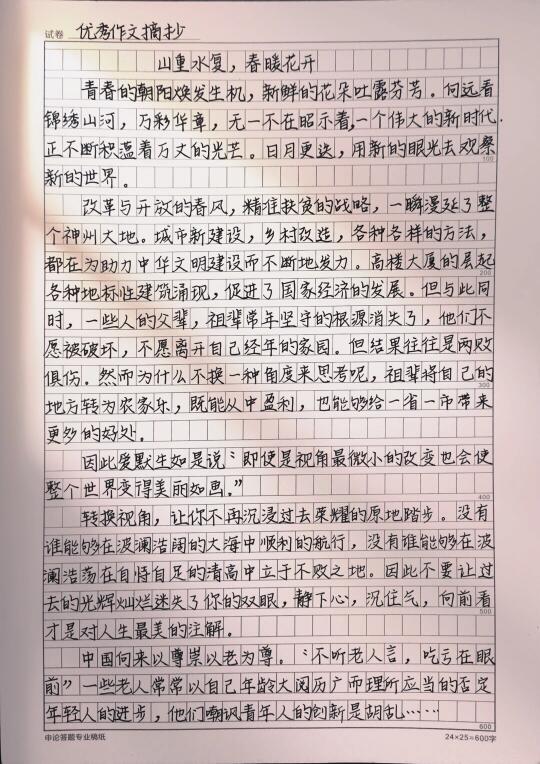 试卷 优秀作文摘抄
山重水复，春暖花开
青春的朝阳焕发生机，新鲜的花朵吐露芬芳。向远看
锦绣山河，万彩华章，无一不在昭示着，一个伟大的新时代，
正不断积蕴着万丈的光芒。日月更迭，用新的眼光去观察
100
新的世界。
改革与开放的春风，精准扶贫的战略，一瞬漫延了整
个神州大地。城市新建设，乡村改造，各种各样的方法，
都在为助力中华文明建设而不断地发力。高楼大厦的层起
200
各种地标性建筑涌现，促进了国家经济的发展。但与此同
时，一些人的父辈，祖辈常年坚守的根源消失了，他们不
愿被破坏，不愿离开自己经年的家园。但结果往往是两败
俱伤。然而为什么不换一种角度来思考呢，祖辈将自己的
300
地方转为农家乐，既能从中盈利，也能够给一省一市带来
更多的好处。
因此爱默生如是说：“即使是视角最微小的改变也会使
整个世界变得美丽如画。”
400
转换视角，让你不再沉浸过去荣耀的原地踏步。没有
谁能够在波澜浩阔的大海中顺利的航行，没有谁能够在波
澜浩荡在自恃自足的清高中立于不败之地。因此不要让过
去的光辉灿烂迷失了你的双眼，静下心，沉住气，向前看
500
才是对人生最美的注解。
中国向来以尊崇以老为尊。“不听老人言，吃亏在眼
前”一些老人常常以自己年龄大阅历广而理所应当的否定
年轻人的进步，他们嘲讽青年人的创新是胡乱……
600
申论答题专业稿纸 24×25=600字